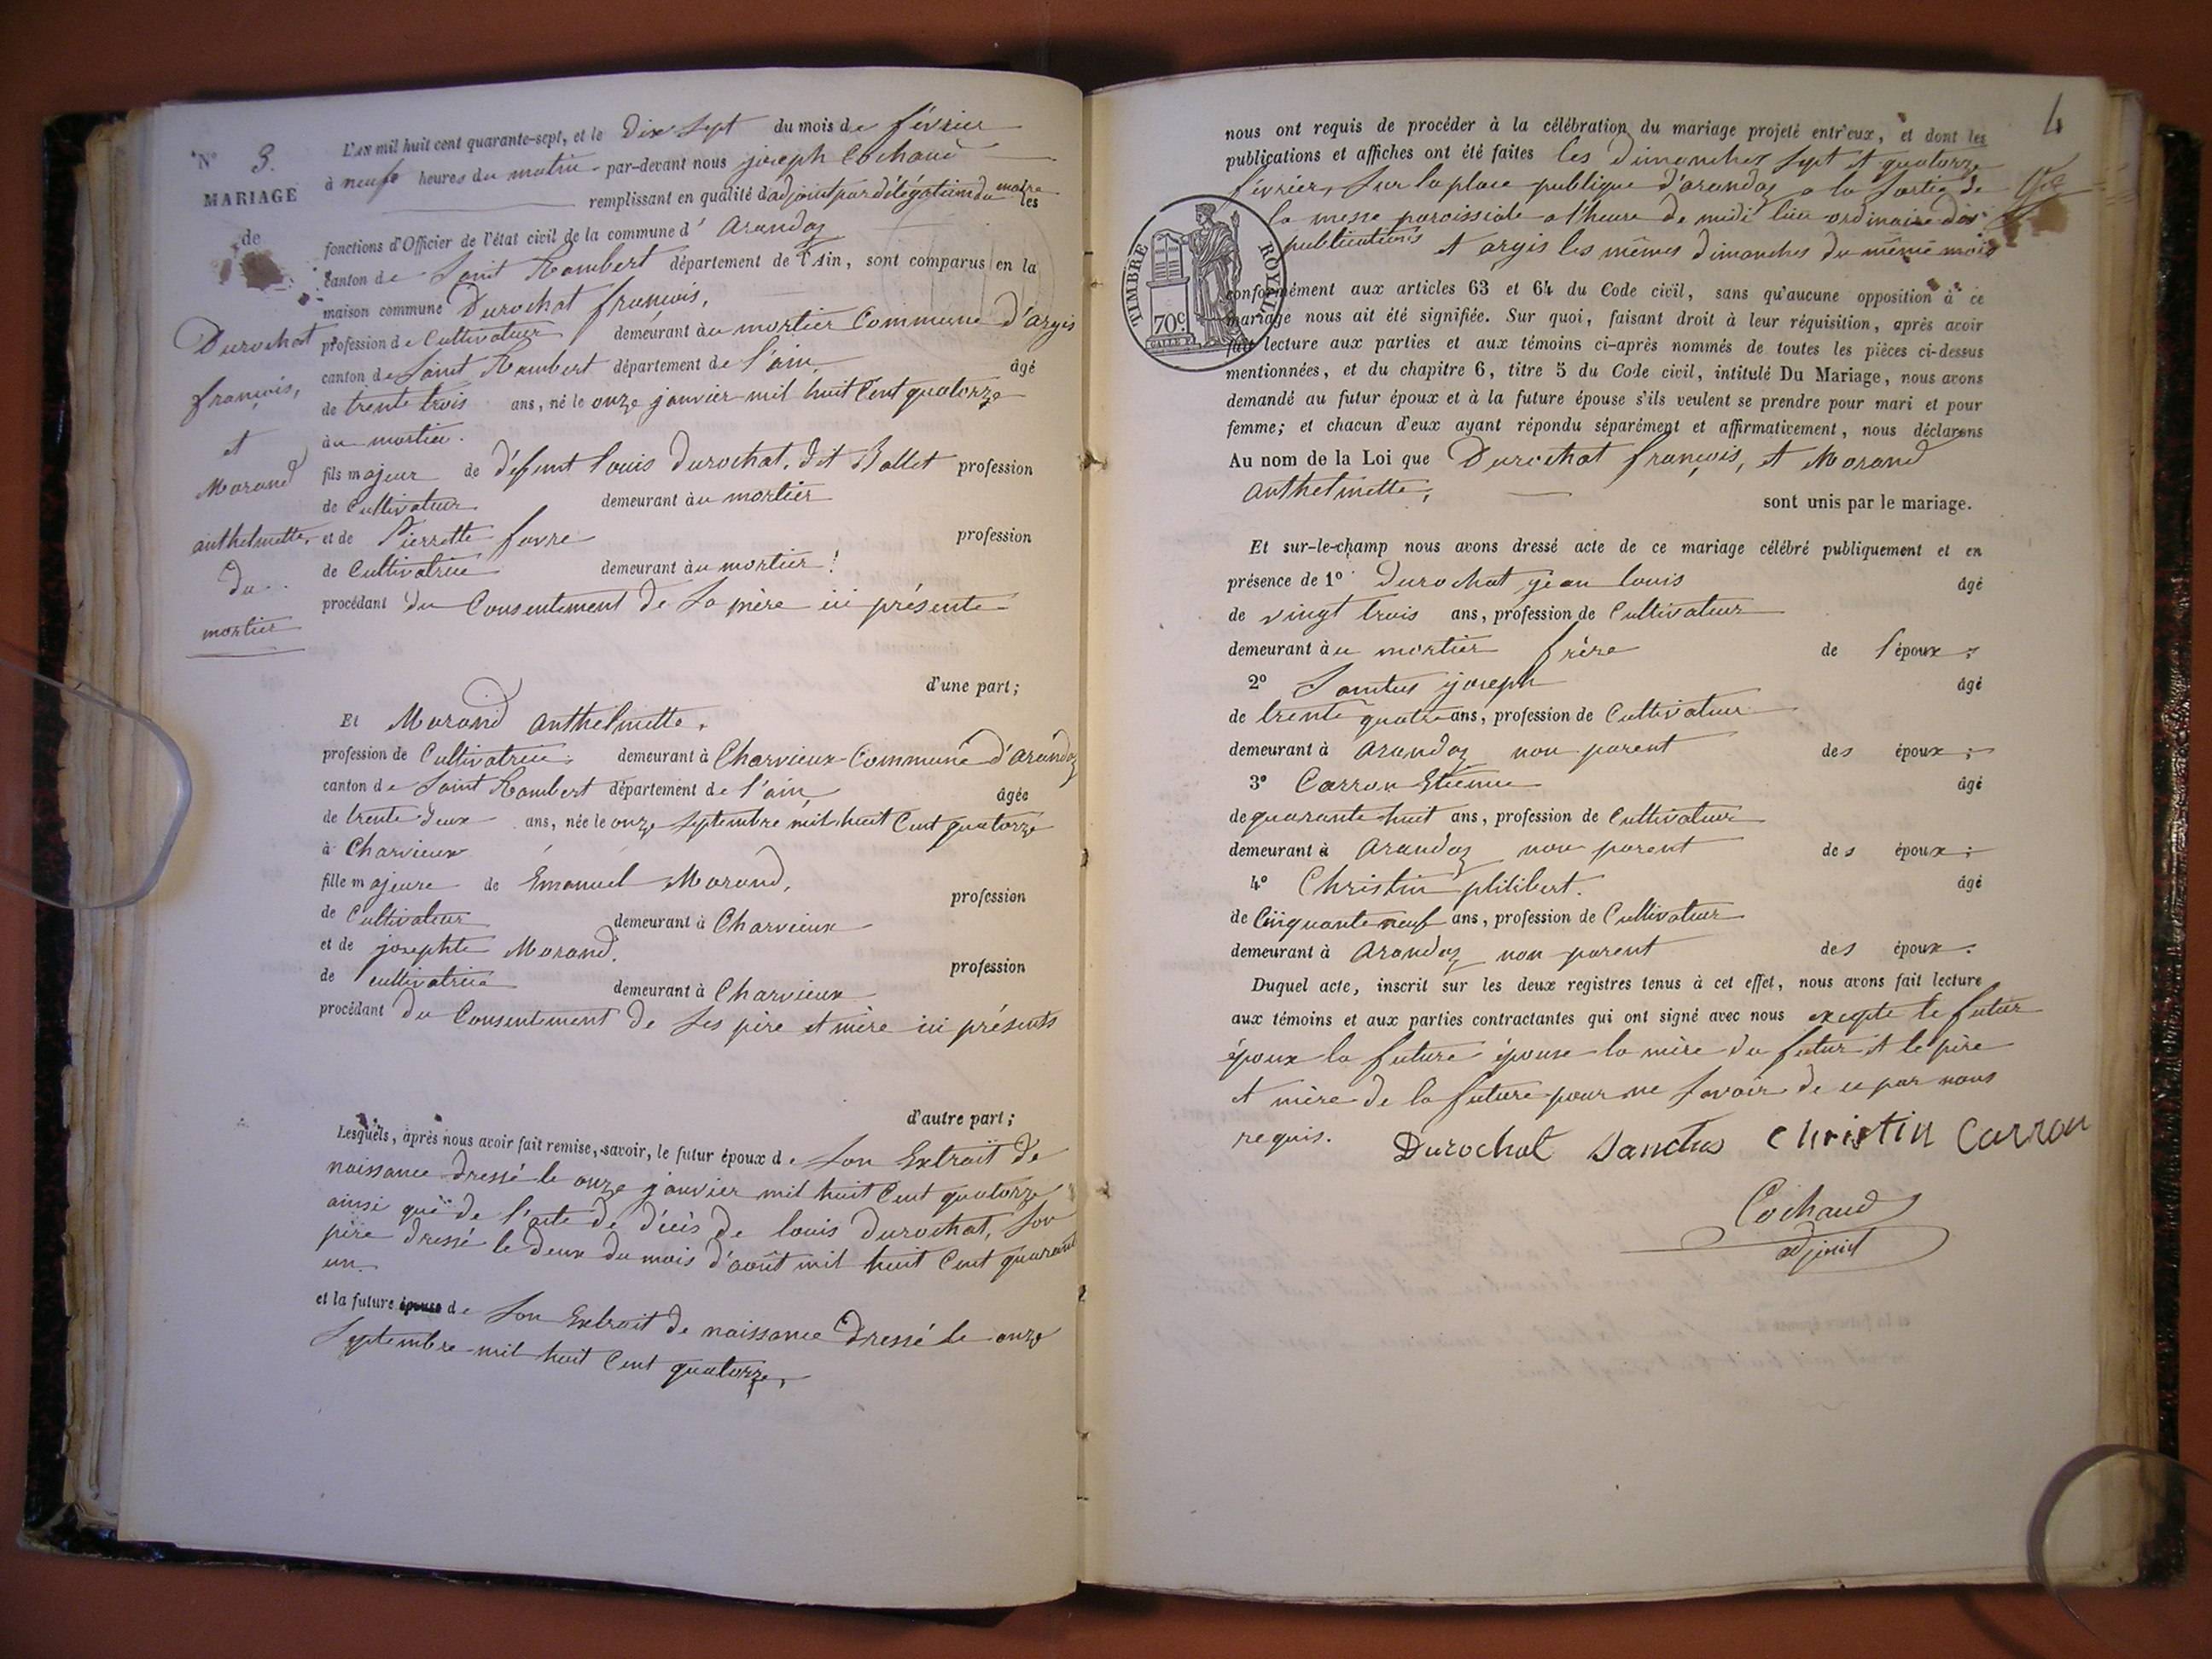 N° 3.
MARIAGE
de
Durochat
françois,
et
Morand
anthelmette,
du
mortier
L'AN mil huit cent quarante-sept, et le dix sept du mois de février
à neufe heures du matin par-devant nous joseph Cochand
remplissant en qualité d'adjoint par délégation du maire les
fonctions d'Officier de l'état civil de la commune d' Arandaz
canton de Saint Rambert département de l'Ain, sont comparus en la
maison commune Durochat françois,
profession de Cultivateur demeurant au mortier Commune d'argis
canton de Saint Rambert département de l'ain, âgé
de trente trois ans, né le onze janvier mil huit Cent quatorze
au mortier.
fils majeur de défunt louis durochat, dit Ballet profession
de Cultivateur demeurant au mortier
et de Pierrette favre profession
de Cultivatrice demeurant au mortier!
procédant du Consentement de Sa mère ici présente
d'une part;
Et Morand Anthelmette.
profession de Cultivatrice. demeurant à Charvieux Commune d'arandaz
canton de Saint Rambert département de l'ain, âgée
de trente deux ans, née le onze septembre mil huit Cent quatorze
à Charvieux
fille majeure de Emanuel Morand, profession
de Cultivateur demeurant à Charvieux
et de josephte Morand. profession
de cultivatrice demeurant à Charvieux
procédant du Consentement de Ses père et mère ici présents
d'autre part;
Lesquels, après nous avoir fait remise, savoir, le futur époux de Son Extrait de
naissance dressé le onze janvier mil huit Cent quatorze
ainsi que de l'acte de décès de louis durochat, Son
père dressé le deux du mois d'août mil huit Cent quarante
un.
et la future épouse de Son Extrait de naissance dressé le onze
Septembre mil huit Cent quatorze,
4
nous ont requis de procéder à la célébration du mariage projeté entr'eux, et dont les
publications et affiches ont été faites les dimanches sept et quatorze
février, Sur la place publique d'arandaz a la Sortie de
la messe paroissiale a l'heure de midi lieu ordinaire des
publications et argis les mêmes dimanches du même mois
TIMBRE ROYAL
70c
conformément aux articles 63 et 64 du Code civil, sans qu'aucune opposition à ce
mariage nous ait été signifiée. Sur quoi, faisant droit à leur réquisition, après avoir
fait lecture aux parties et aux témoins ci-après nommés de toutes les pièces ci-dessus
mentionnées, et du chapitre 6, titre 5 du Code civil, intitulé Du Mariage, nous avons
demandé au futur époux et à la future épouse s'ils veulent se prendre pour mari et pour
femme; et chacun d'eux ayant répondu séparément et affirmativement, nous déclarons
Au nom de la Loi que Durochat françois, et Morand
Anthelmette,
sont unis par le mariage.
Et sur-le-champ nous avons dressé acte de ce mariage célébré publiquement et en
présence de 1° durochat jean louis âgé
de vingt trois ans, profession de Cultivateur
demeurant au mortier frère de l'époux;
2° Santus joseph âgé
de trente quatre ans, profession de Cultivateur
demeurant à Arandaz non parent des époux;
3° Carron Etienne âgé
de quarante huit ans, profession de Cultivateur
demeurant à Arandaz non parent des époux;
4° Christin philibert. âgé
de Cinquante neuf ans, profession de Cultivateur
demeurant à Arandaz non parent des époux.
Duquel acte, inscrit sur les deux registres tenus à cet effet, nous avons fait lecture
aux témoins et aux parties contractantes qui ont signé avec nous excepte le futur
époux la future épouse la mère du futur et le père
et mère de la future pour ne Savoir de ce par nous
requis. Durochat Sanctus Christin Carron
Cochaud
adjoint